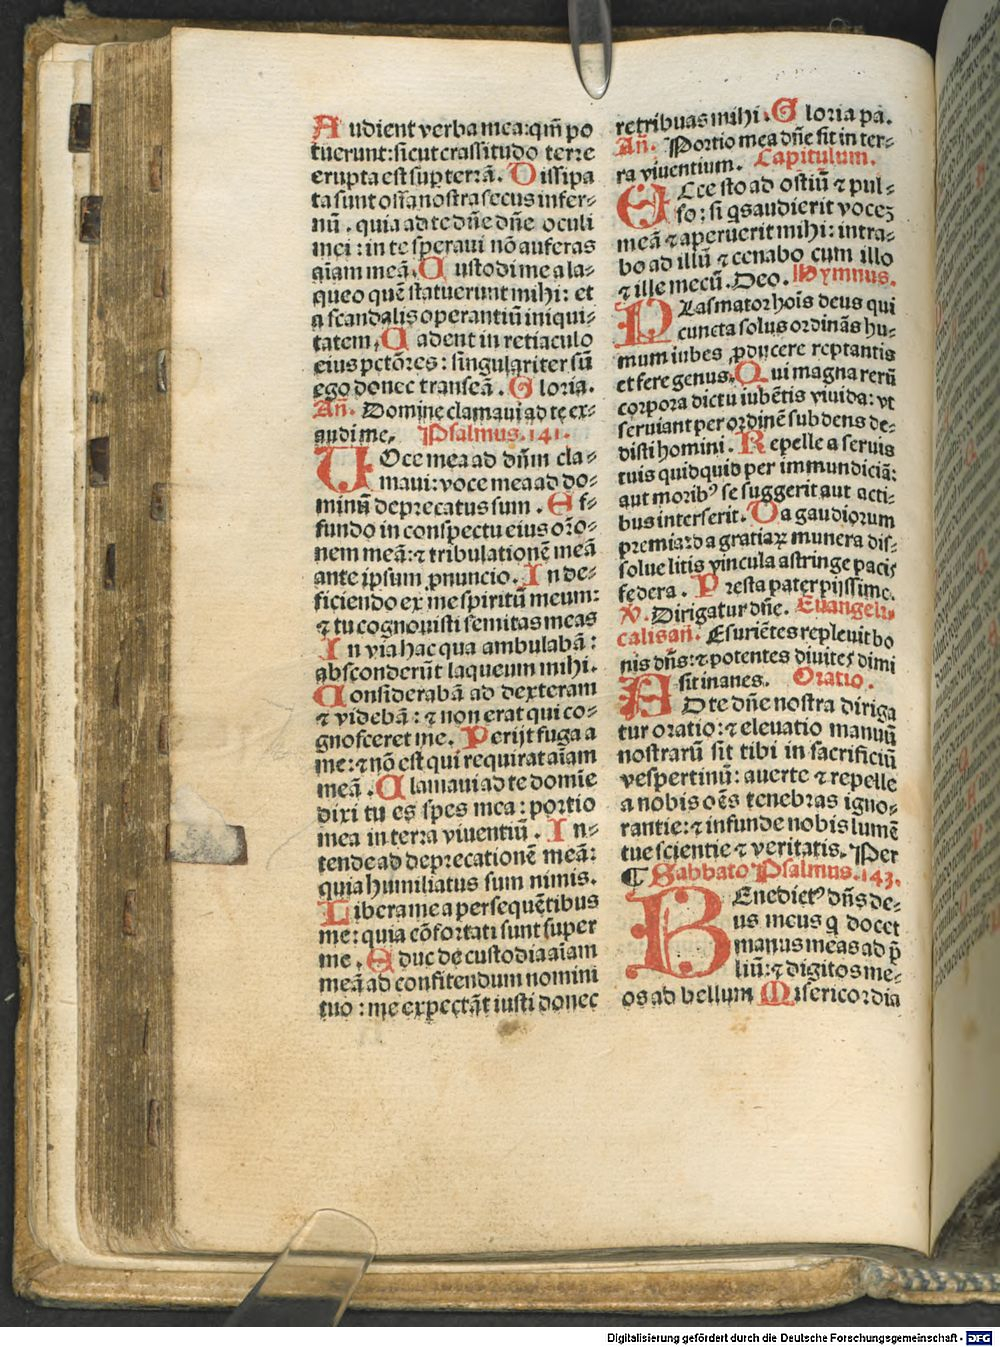 Audient verba mea: qm̄ po
tuerunt: sicut crassitudo terre
erupta est sup terrā. Dissipa
ta sunt ossa nostra secus infer-
nū. quia ad te dn̄e dn̄e oculi
mei: in te speraui nō auferas
aīam meā. Custodi me a la-
queo quē statuerunt mihi: et
a scandalis operantiū iniqui-
tatem. Cadent in retiaculo
eius pctōres: singulariter sū
ego donec transeā. Gloria.
An̄. Domine clamaui ad te ex-
audi me. Psalmus. 141.
VOce mea ad dn̄m cla-
maui: voce mea ad do-
minū deprecatus sum. Ef-
fundo in conspectu eius orō-
nem meā: ⁊ tribulationē meā
ante ipsum ꝓnuncio. In de-
ficiendo ex me spiritū meum:
⁊ tu cognouisti semitas meas
In via hac qua ambulabā:
absconderūt laqueum mihi.
Considerabā ad dexteram
⁊ videbā: ⁊ non erat qui co-
gnosceret me. Perijt fuga a
me: ⁊ nō est qui requirat aīam
meā. Clamaui ad te domīe
dixi tu es spes mea: portio
mea in terra viuentiū. In-
tende ad deprecationē meā:
quia humiliatus sum nimis.
Libera me a persequētibus
me: quia cōfortati sunt super
me. Educ de custodia aīam
meā ad confitendum nomini
tuo: me expectāt iusti donec
retribuas mihi. Gloria pa.
An̄. Portio mea dn̄e sit in ter-
ra viuentium. Capitulum.
ECce sto ad ostiū ⁊ pul-
so: si qs audierit vocez
meā ⁊ aperuerit mihi: intra-
bo ad illū ⁊ cenabo cum illo
⁊ ille mecū. Deo. Hymnus.
PLasmator hoīs deus qui
cuncta solus ordinās hu-
mum iubes ꝓducere reptantis
et fere genus. Qui magna rerū
corpora dictu iubētis viuida: vt
seruiant per ordinē subdens de-
disti homini. Repelle a seruis
tuis quidquid per immundiciā:
aut moribꝰ se suggerit aut acti-
bus interserit. Da gaudiorum
premia: da gratiaꝝ munera dis-
solue litis vincula astringe pacis
federa. Presta pater pijssime.
V. Dirigatur dn̄e. Euangeli-
calis an̄. Esuriētes repleuit bo
nis dn̄s: ⁊ potentes diuites dimi
sit inanes. Oratio.
AD te dn̄e nostra diriga
tur oratio: ⁊ eleuatio manuū
nostrarū sit tibi in sacrificiū
vespertinū: auerte ⁊ repelle
a nobis oēs tenebras igno-
rantie: ⁊ infunde nobis lumē
tue scientie ⁊ veritatis. Per
¶ Sabbato Psalmus. 143.
BEnedictꝰ dn̄s de-
us meus q docet
manus meas ad p̄
liū: ⁊ digitos me-
os ad bellum Misericordia
Digitalisierung gefördert durch die Deutsche Forschungsgemeinschaft - DFG